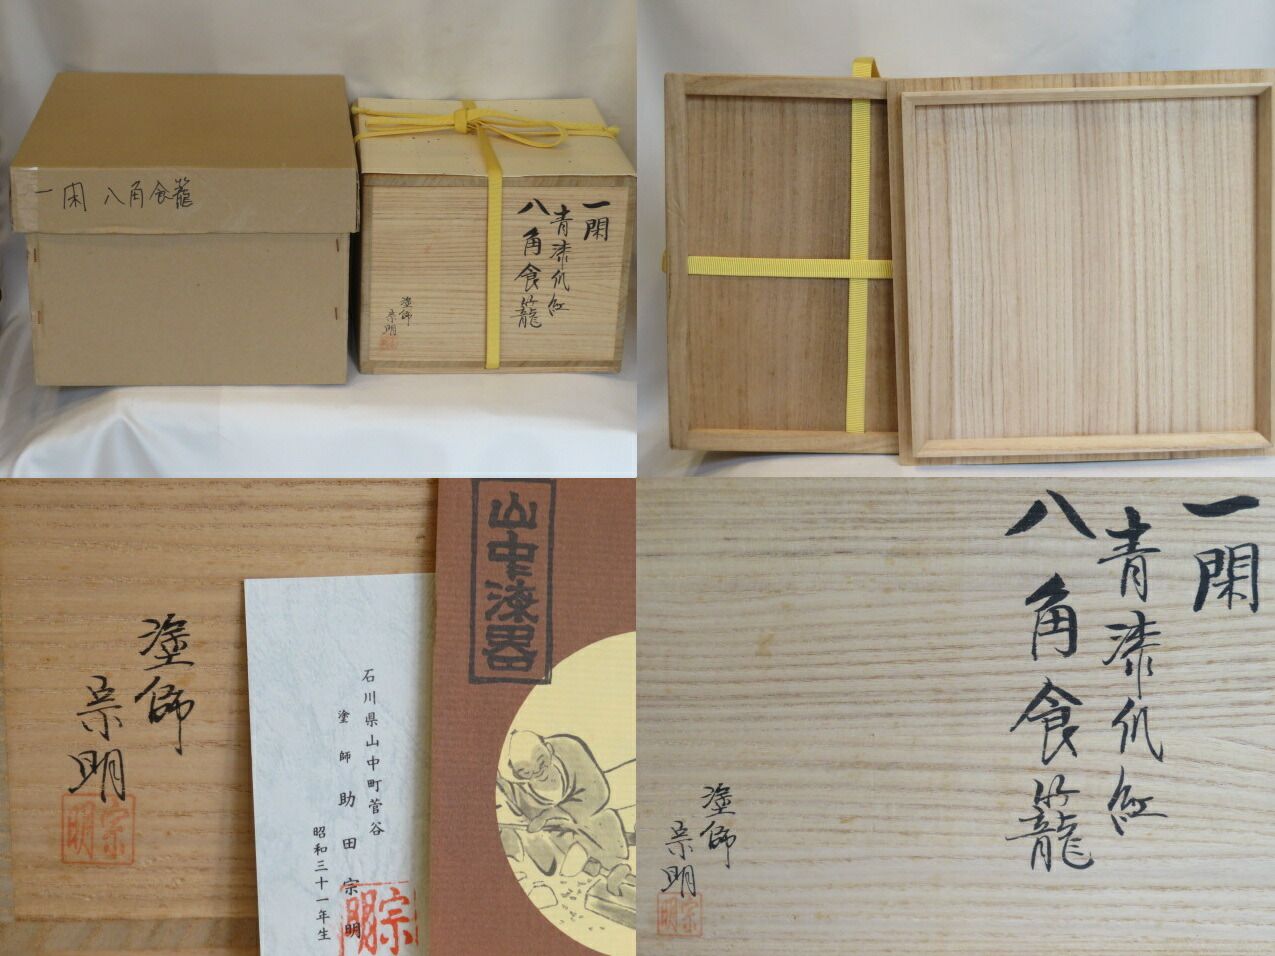 一閑 八角食籠
一閑
青漆爪紅
八角食籠
塗師
宗明
塗師
宗明
宗明
石川県山中町菅谷
塗師 助田宗明
昭和三十一年生
宗明
山中漆器
一閑
青漆爪紅
八角食籠
塗師
宗明
宗明